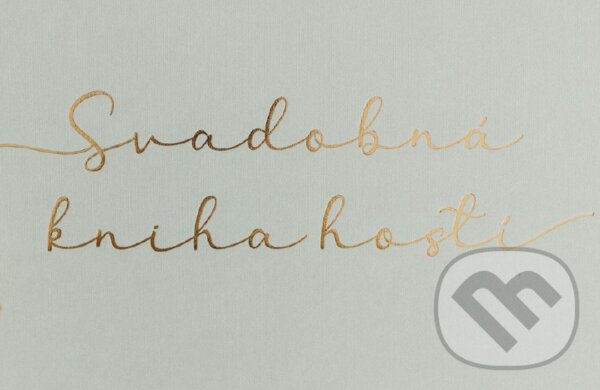 Svadobná
kniha hostí